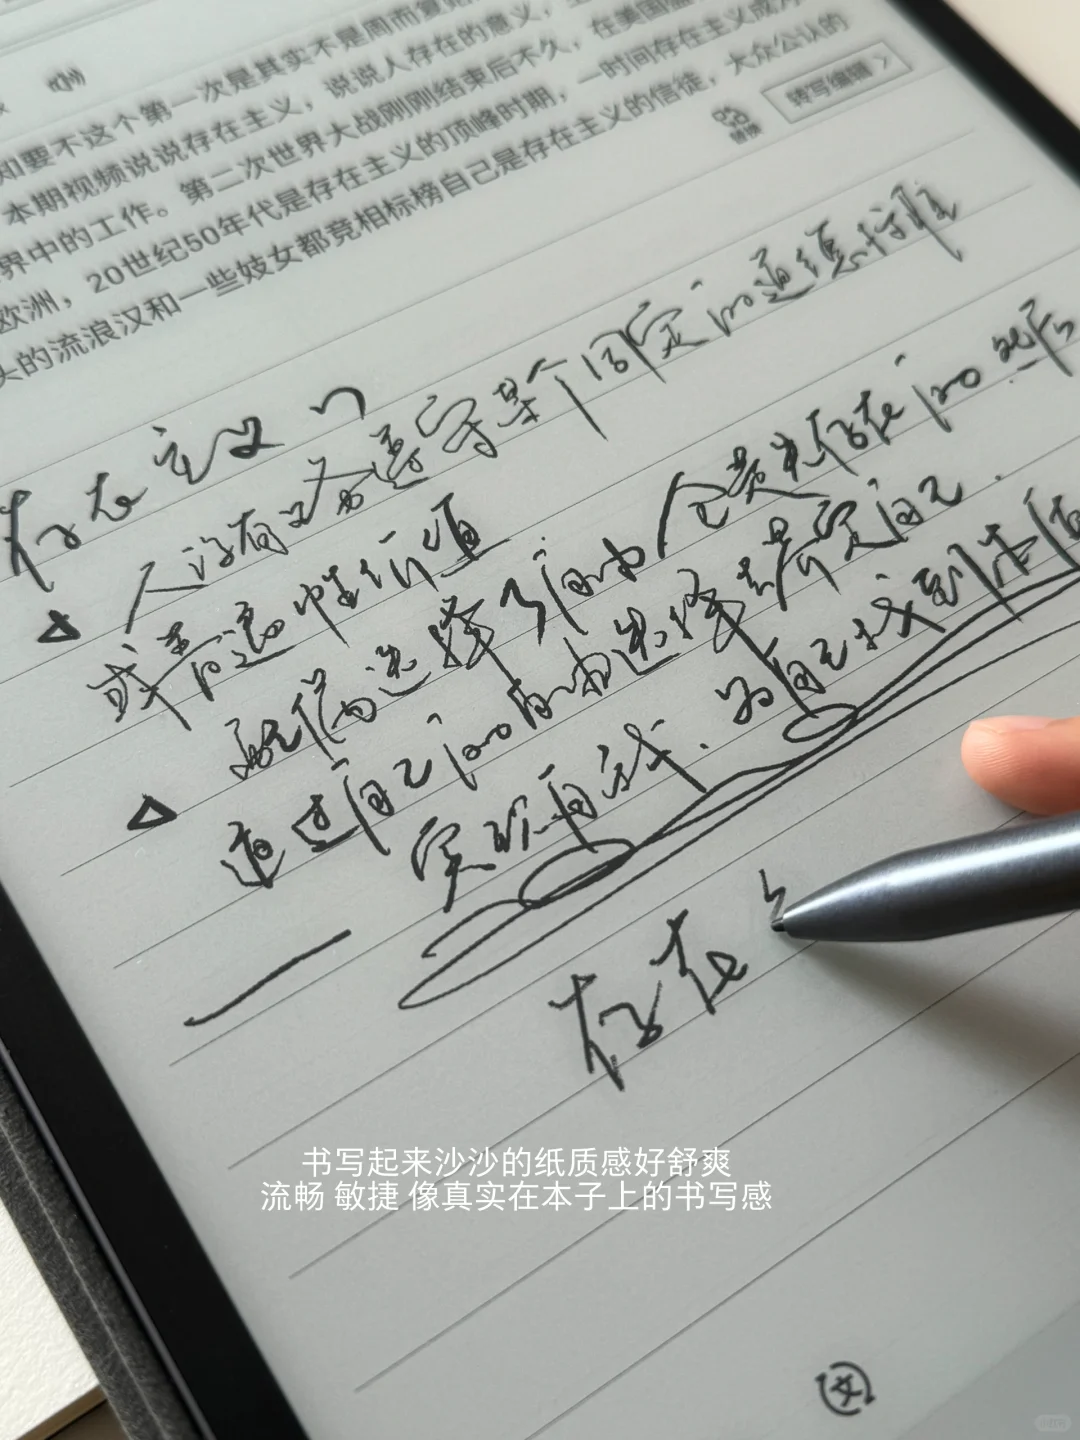 知要不这个第一次是其实不是周而复
本期视频说说存在主义，说说人存在的意义，
界中的工作。第二次世界大战刚刚结束后不久，在美国
欧洲，20世纪50年代是存在主义的顶峰时期，一时间存在主义成为
头的流浪汉和一些妓女都竞相标榜自己是存在主义的信徒，大众公认的
转写编辑 >
存在主义
人没有义务遵守某个固定的道德标准
或普遍性价值
却能选择了自由
通过自己的自由选择去决定自己
实现自我、为自己找到
存在
书写起来沙沙的纸质感好舒爽
流畅 敏捷 像真实在本子上的书写感
文